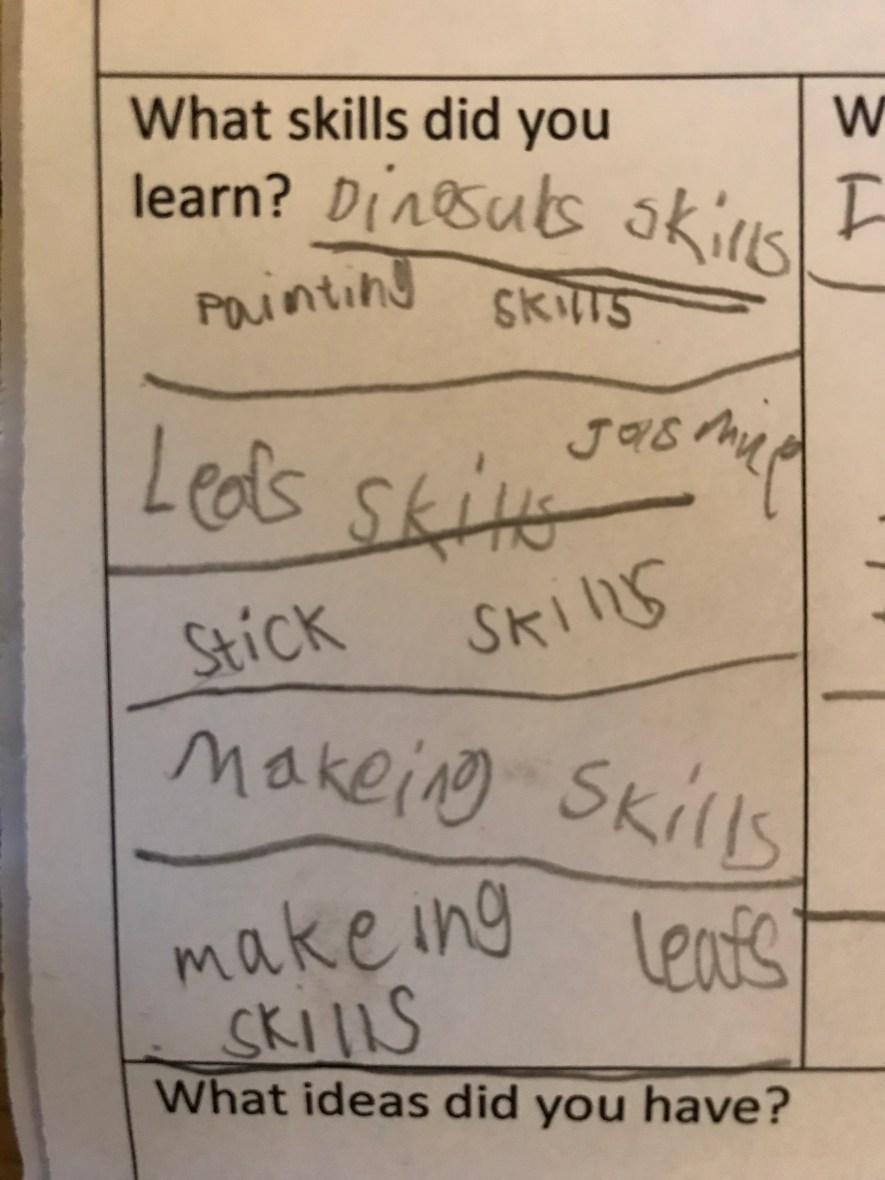 What skills did you
learn? Dinosuls skills
painting skills
Jasmine
Leafs skills
stick skills
Makeing skills
makeing leafs
skills
What ideas did you have?
W
I